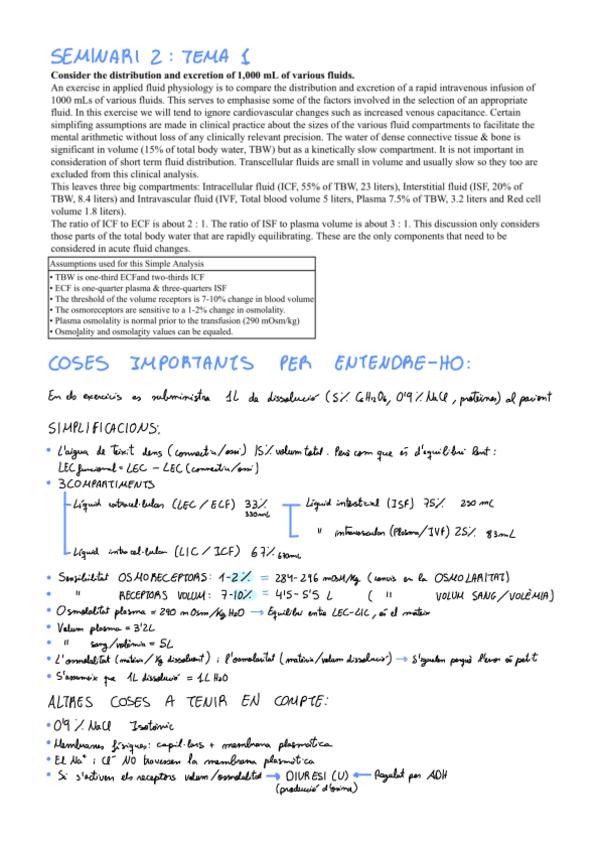 SEMINARI 2: TEMA 1
Consider the distribution and excretion of 1,000 mL of various fluids.
An exercise in applied fluid physiology is to compare the distribution and excretion of a rapid intravenous infusion of
1000 mLs of various fluids. This serves to emphasise some of the factors involved in the selection of an appropriate
fluid. In this exercise we will tend to ignore cardiovascular changes such as increased venous capacitance. Certain
simplifing assumptions are made in clinical practice about the sizes of the various fluid compartments to facilitate the
mental arithmetic without loss of any clinically relevant precision. The water of dense connective tissue & bone is
significant in volume (15% of total body water, TBW) but as a kinetically slow compartment. It is not important in
consideration of short term fluid distribution. Transcellular fluids are small in volume and usually slow so they too are
excluded from this clinical analysis.
This leaves three big compartments: Intracellular fluid (ICF, 55% of TBW, 23 liters), Interstitial fluid (ISF, 20% of
TBW, 8.4 liters) and Intravascular fluid (IVF, Total blood volume 5 liters, Plasma 7.5% of TBW, 3.2 liters and Red cell
volume 1.8 liters).
The ratio of ICF to ECF is about 2 : 1. The ratio of ISF to plasma volume is about 3 : 1. This discussion only considers
those parts of the total body water that are rapidly equilibrating. These are the only components that need to be
considered in acute fluid changes.
Assumptions used for this Simple Analysis
• TBW is one-third ECFand two-thirds ICF
• ECF is one-quarter plasma & three-quarters ISF
• The threshold of the volume receptors is 7-10% change in blood volume
• The osmoreceptors are sensitive to a 1-2% change in osmolality.
• Plasma osmolality is normal prior to the transfusion (290 mOsm/kg)
• Osmolality and osmolarity values can be equaled.
COSES IMPORTANTS PER ENTENDRE-HO:
exercicis es subministra 1L de dissolució (5% C6H12O6, 0'9% NaCl, proteïnes) al pacient
SIMPLIFICACIONS:
• L'aigua de Teixit dens (connectiu/ossi) 15% volum total. Però com que és d'equilibri lent:
LEC funcional = LEC - LEC (connectiu/ossi)
• 3 COMPARTIMENTS
Líquid extracel·lular (LEC/ECF) 33% 330mL
Líquid intersticial (ISF) 75% 250 mL
" intravascular (Plasma/IVF) 25% 83mL
Líquid intracel·lular (LIC/ICF) 67% 670mL
• Sensibilitat OSMORECEPTORS: 1-2% = 284-296 mOsm/Kg (canvis en la OSMOLARITAT)
• " RECEPTORS VOLUM: 7-10% = 4'5-5'5 L ( " VOLUM SANG/VOLÈMIA)
• Osmolalitat plasma = 290 mOsm/Kg H2O → Equilibri entre LEC-LIC, és el mateix
• Volum plasma = 3'2L
• " sang/volèmia = 5L
• L'osmolalitat (matèria/Kg dissolvent) i l'osmolaritat (matèria/volum dissolució) → S'igualen perquè l'error és petit
• S'assumeix que 1L dissolució = 1L H2O
ALTRES COSES A TENIR EN COMPTE:
• 0'9% NaCl Isotònic
• Membranes físiques: capil·lars + membrana plasmàtica
• El Na+ i Cl- NO travessen la membrana plasmàtica
• Si s'activen els receptors volum/osmolalitat → DIURESI (U) ← Regulat per ADH
(producció d'orina)